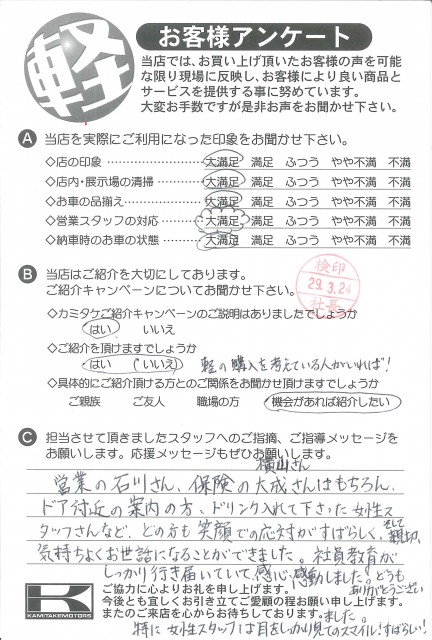 軽
お客様アンケート
当店では、お買い上げ頂いたお客様の声を可能
な限り現場に反映し、お客様により良い商品と
サービスを提供する事に努めています。
大変お手数ですが是非お声をお聞かせ下さい。
A 当店を実際にご利用になった印象をお聞かせ下さい。
◇店の印象 大満足 満足 ふつう やや不満 不満
◇店内・展示場の清掃 大満足 満足 ふつう やや不満 不満
◇お車の品揃え 大満足 満足 ふつう やや不満 不満
◇営業スタッフの対応 大満足 満足 ふつう やや不満 不満
◇納車時のお車の状態 大満足 満足 ふつう やや不満 不満
B 当店はご紹介を大切にしております。
ご紹介キャンペーンについてお聞かせ下さい。
検印
29.3.24
社長
◇カミタケご紹介キャンペーンのご説明はありましたでしょうか
はい いいえ
◇ご紹介を頂けますでしょうか
はい いいえ 軽の購入を考えている人がいれば!
◇具体的にご紹介頂ける方とのご関係をお聞かせ頂けますでしょうか
ご親族 ご友人 職場の方 機会があれば紹介したい
C 担当させて頂きましたスタッフへのご指摘、ご指導メッセージを
お願いします。応援メッセージもぜひお願いします。
横山さん
営業の石川さん、保険の大成さんはもちろん、
ドア付近の案内の方、ドリンク入れて下さった女性ス
タッフさんなど、どの方も笑顔での応対がすばらしく、そして親切、
気持ちよくお世話になることができました。社員教育が
しっかり行き届いていて感心、感動しました。どうも
ありがとうござい
ました。
ご協力に心よりお礼を申し上げます。
今後とも宜しくお引き立てご愛顧の程お願い申し上げます。
またのご来店を心からお待ちしております。
K
KAMITAKEMOTORS
特に女性スタッフは目をしっかり見てのスマイル!すばらしい!